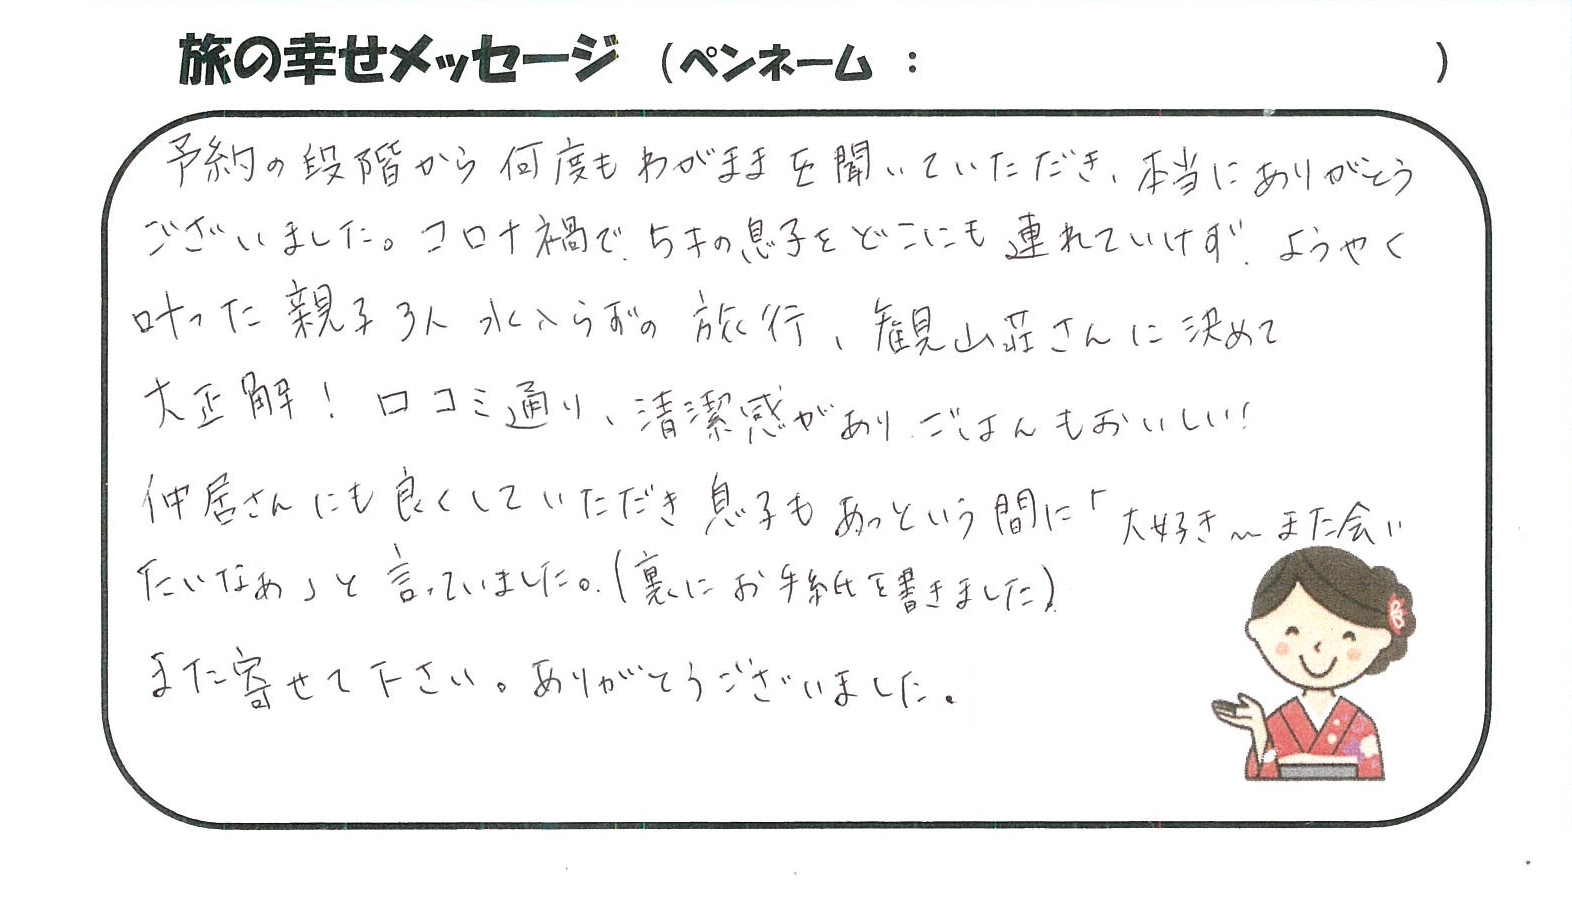 旅の幸せメッセージ (ペンネーム : )
予約の段階から何度もわがままを聞いていただき、本当にありがとう
ございました。コロナ禍で、5才の息子をどこにも連れていけず、ようやく
叶った親子3人水入らずの旅行、観山荘さんに決めて
大正解! 口コミ通り、清潔感があり、ごはんもおいしい!
仲居さんにも良くしていただき息子もあっという間に「大好き〜また会い
たいなぁ」と言っていました。(裏にお手紙を書きました)
また寄せて下さい。ありがとうございました。